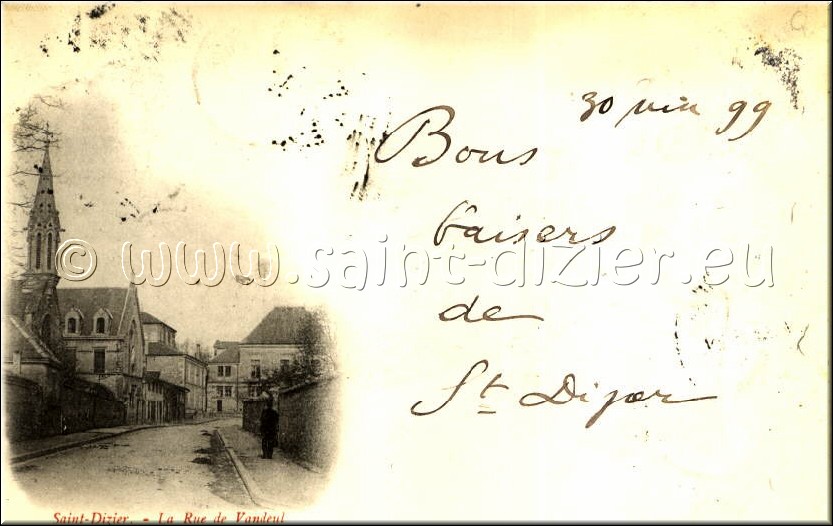 30 juin 99
Bons
baisers
de
St Dizier
© www.saint-dizier.eu
Saint-Dizier. - La Rue de Vandeul